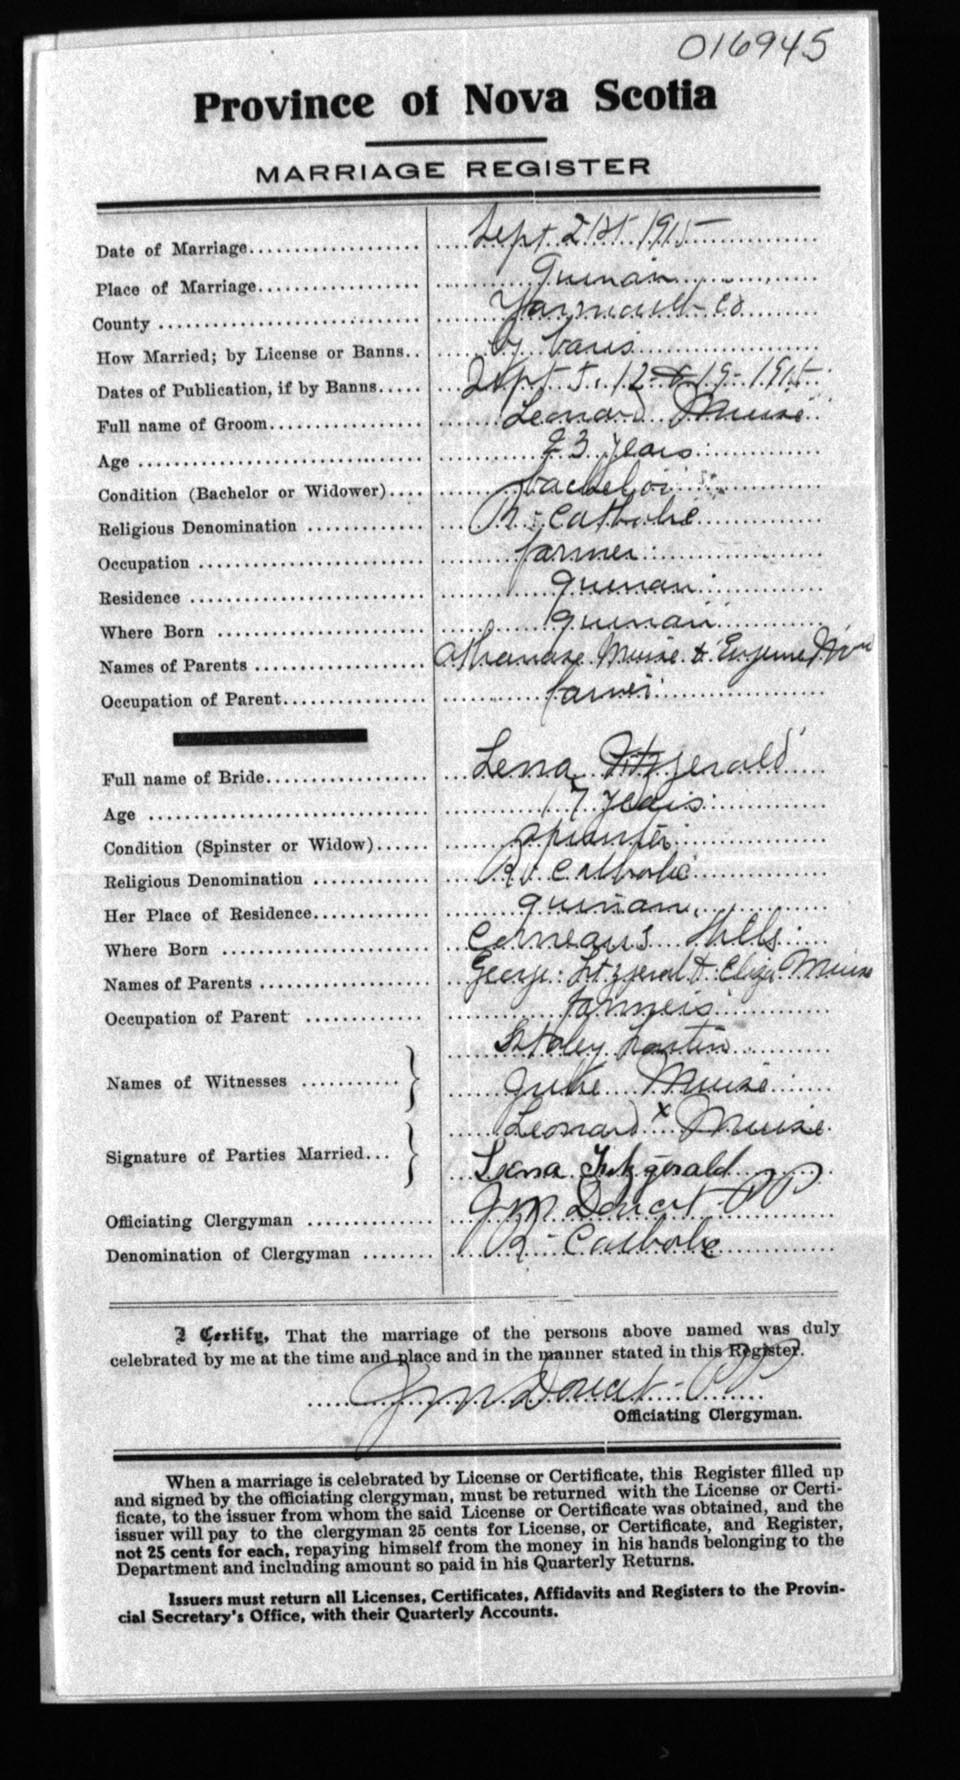 016945
Province of Nova Scotia
MARRIAGE REGISTER
Date of Marriage Sept 21st 1915
Place of Marriage Quinan
County Yarmouth Co
How Married; by License or Banns by banns
Dates of Publication, if by Banns Sept 5, 12 & 19 - 1915
Full name of Groom Leonard Muise
Age 23 years
Condition (Bachelor or Widower) bachelor
Religious Denomination R - Catholic
Occupation farmer
Residence Quinan
Where Born Quinan
Names of Parents Athanase Muise &
Occupation of Parent farmer
Full name of Bride Lena Fitzgerald
Age 17 years
Condition (Spinster or Widow) spinster
Religious Denomination R. Catholic
Her Place of Residence Quinan
Where Born Comeau's Hills
Names of Parents George Fitzgerald & Eliza Muise
Occupation of Parent farmers
Names of Witnesses
Muise
Signature of Parties Married Leonard x Muise
Lena Fitzgerald
Officiating Clergyman J M Doucet PP
Denomination of Clergyman R - Catholic
I Certify, That the marriage of the persons above named was duly
celebrated by me at the time and place and in the manner stated in this Register.
J M Doucet - PP
Officiating Clergyman.
When a marriage is celebrated by License or Certificate, this Register filled up
and signed by the officiating clergyman, must be returned with the License or Certi-
ficate, to the issuer from whom the said License or Certificate was obtained, and the
issuer will pay to the clergyman 25 cents for License, or Certificate, and Register,
not 25 cents for each, repaying himself from the money in his hands belonging to the
Department and including amount so paid in his Quarterly Returns.
Issuers must return all Licenses, Certificates, Affidavits and Registers to the Provin-
cial Secretary's Office, with their Quarterly Accounts.